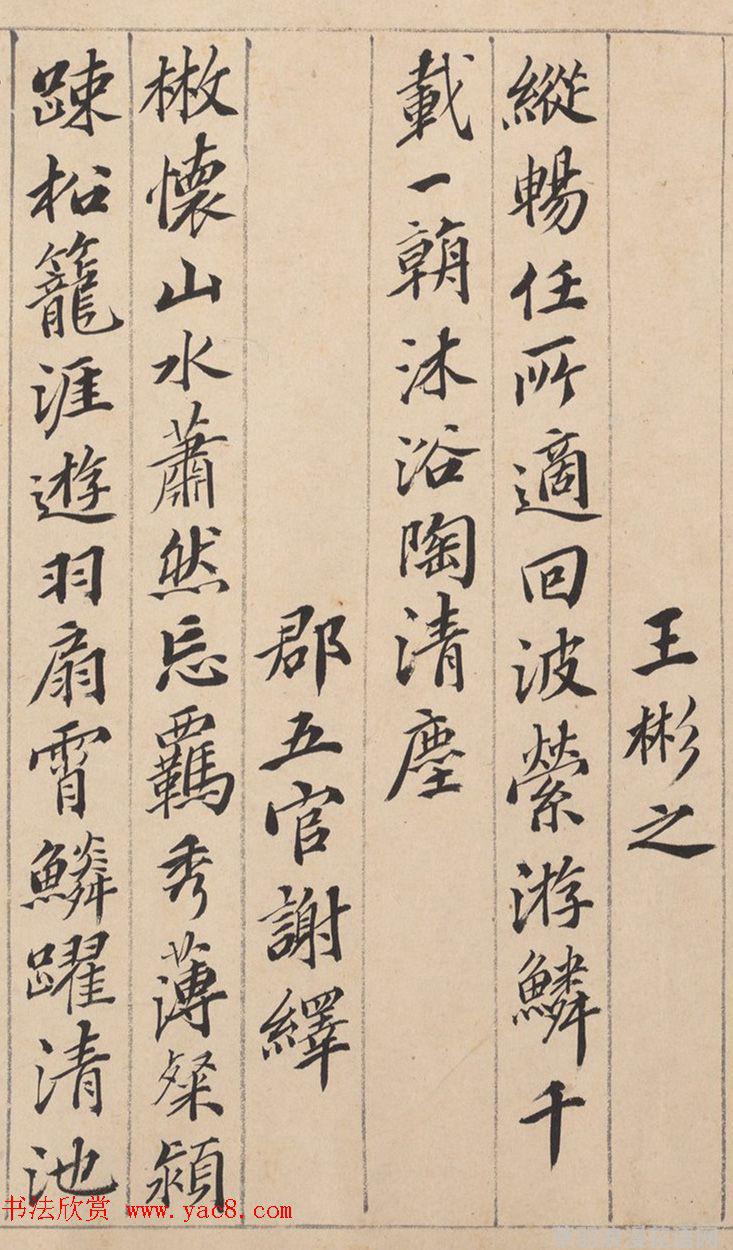 王彬之
縱暢任所適回波縈游鱗千
載一朝沐浴陶清塵
郡五官謝繹
散懷山水蕭然忘羈秀薄粲穎
踈松籠涯遊羽扇霄鱗躍清池
书法欣赏 www.yac8.com